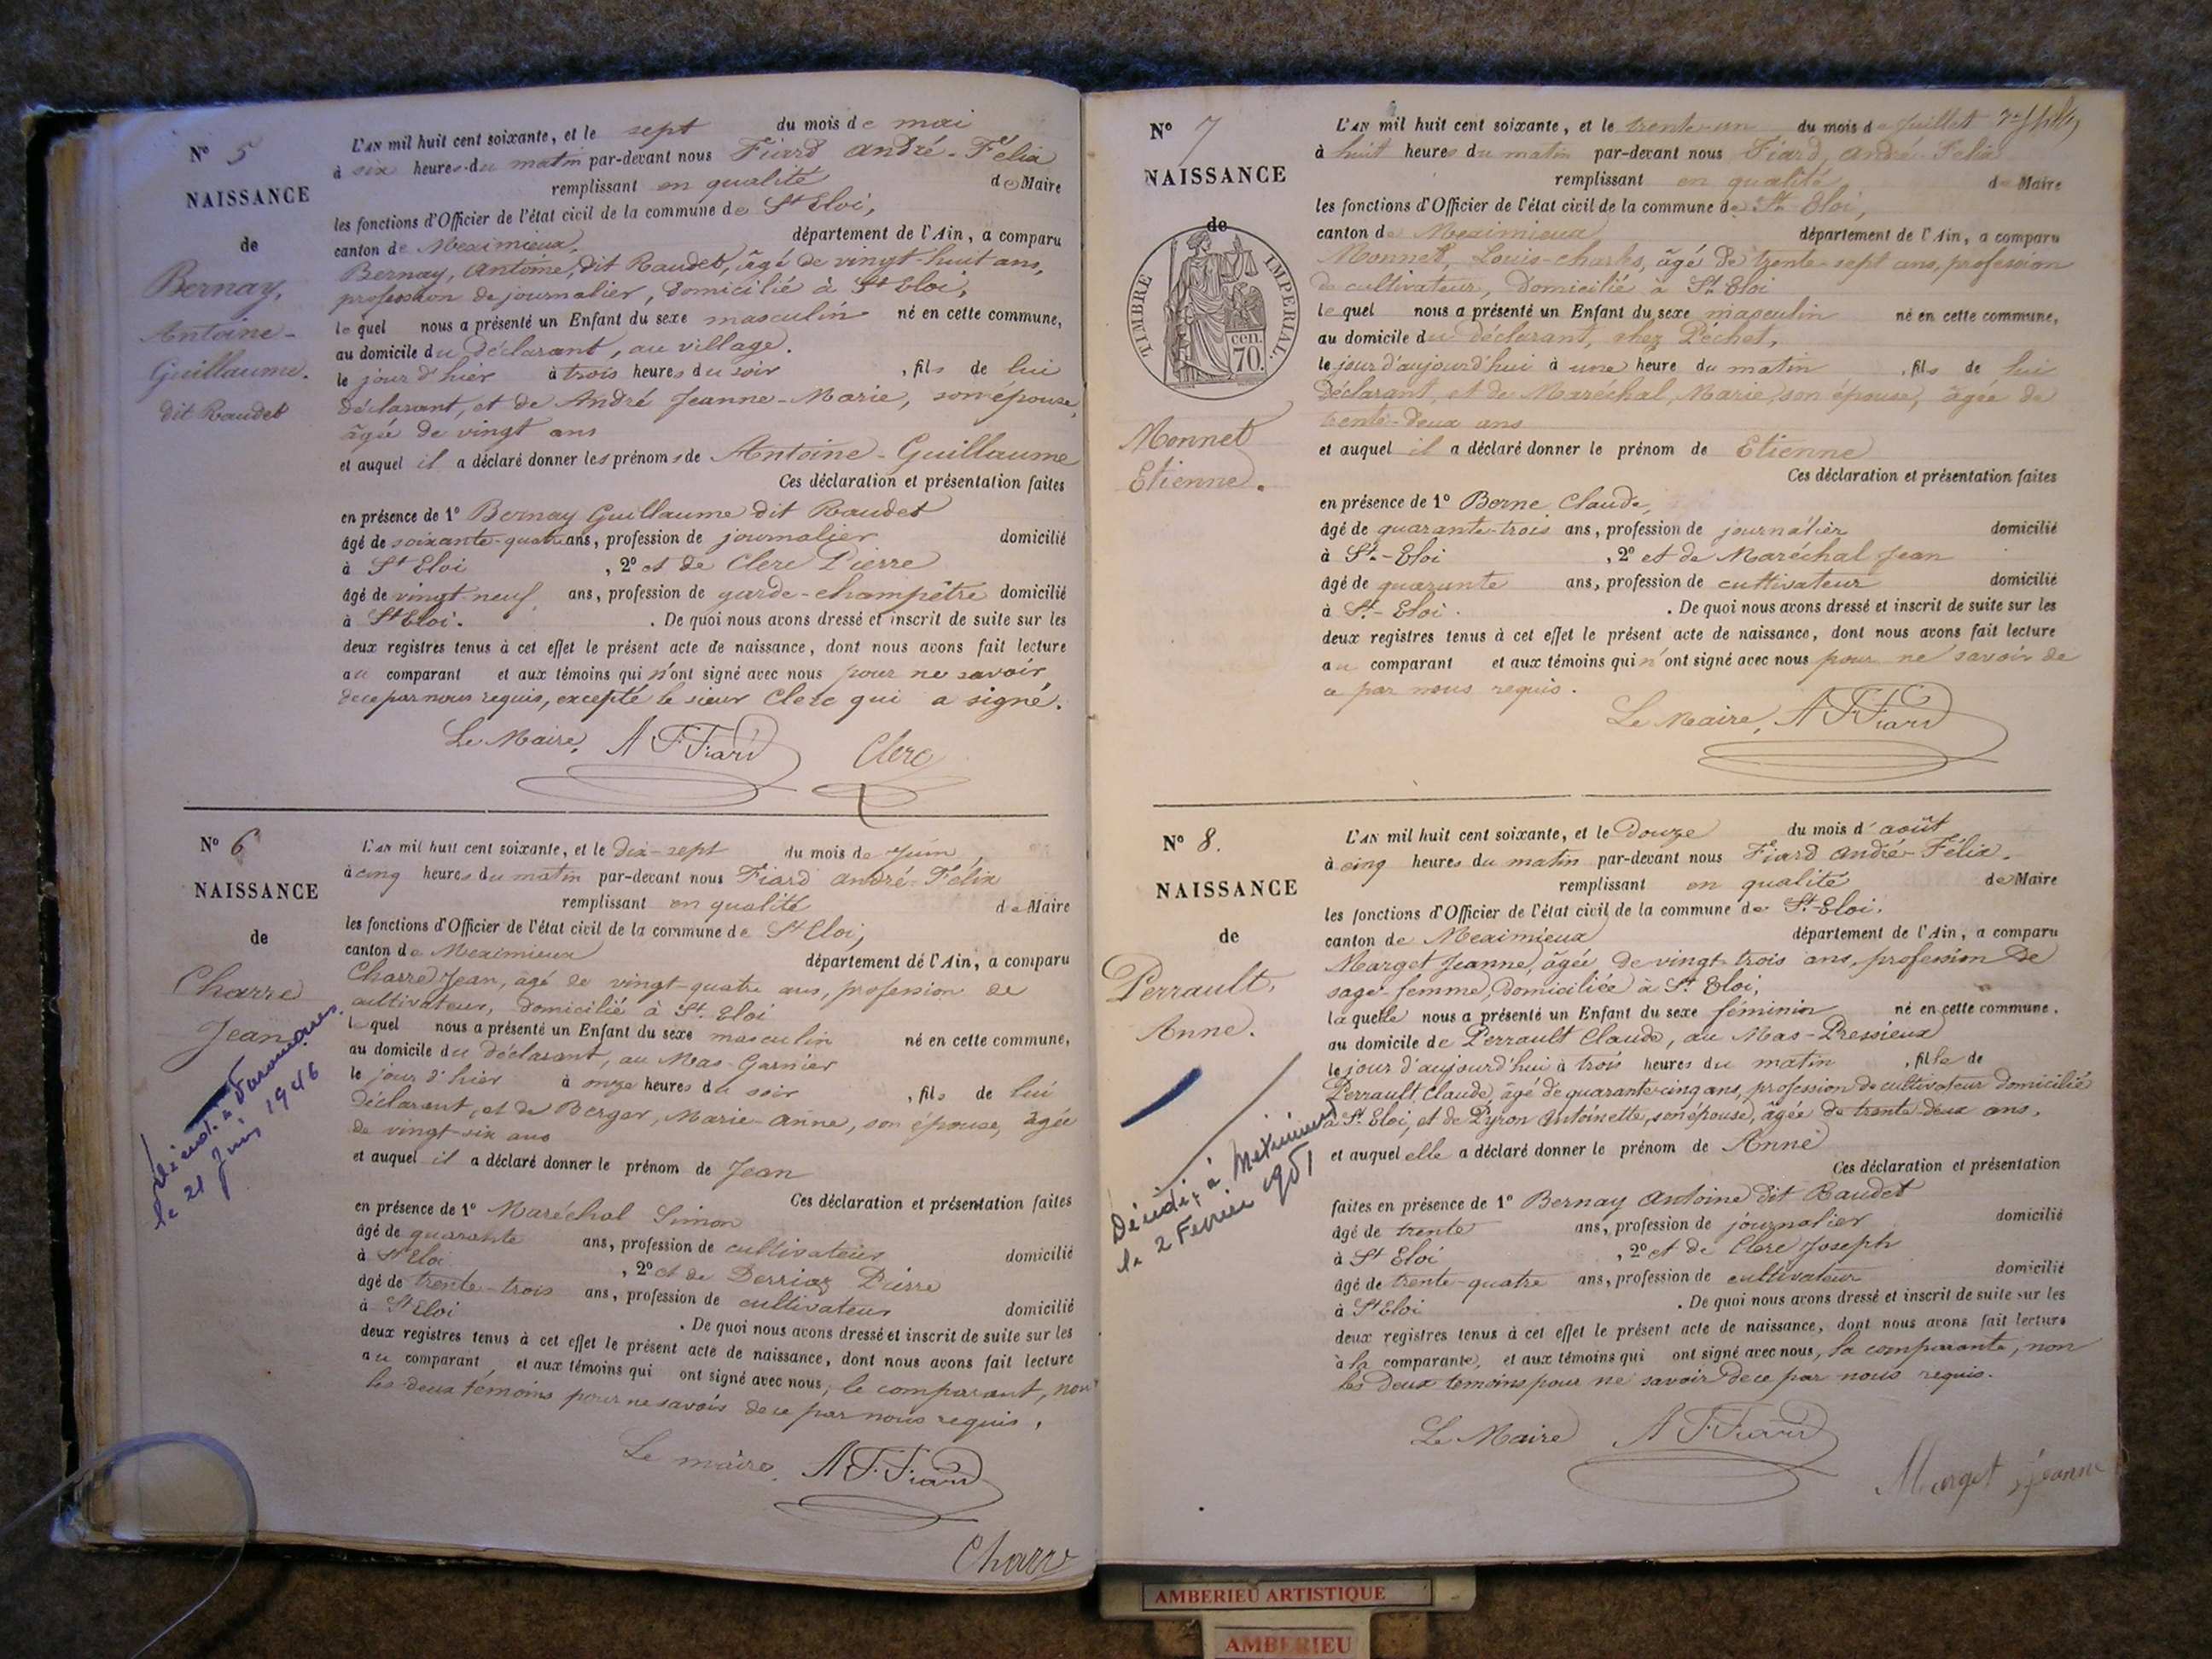 N° 5
NAISSANCE
de
Bernay,
Antoine-
Guillaume.
dit Raudet
L'AN mil huit cent soixante, et le sept du mois de mai
à six heures du matin par-devant nous Fiard André-Félix
remplissant en qualité de Maire
les fonctions d'Officier de l'état civil de la commune de St Eloi,
canton de Meximieux, département de l'Ain, a comparu
Bernay, Antoine, dit Raudet, âgé de vingt-huit ans,
profession de journalier, domicilié à St Eloi,
lequel nous a présenté un Enfant du sexe masculin né en cette commune,
au domicile du déclarant, au village.
le jour d'hier à trois heures du soir, fils de lui
déclarant, et de André Jeanne-Marie, son épouse,
âgée de vingt ans
et auquel il a déclaré donner les prénoms de Antoine-Guillaume
Ces déclaration et présentation faites
en présence de 1° Bernay Guillaume dit Raudet
âgé de soixante-quatre ans, profession de journalier domicilié
à St Eloi, 2° et de Clerc Pierre
âgé de vingt-neuf ans, profession de garde-champêtre domicilié
à St Eloi. . De quoi nous avons dressé et inscrit de suite sur les
deux registres tenus à cet effet le présent acte de naissance, dont nous avons fait lecture
au comparant et aux témoins qui n'ont signé avec nous pour ne savoir,
de ce par nous requis, excepté le sieur Clerc qui a signé.
Le Maire, A F Fiard Clerc
N° 6
NAISSANCE
de
Charre
Jean
décédé à
le 21 Juin 1946
L'AN mil huit cent soixante, et le dix-sept du mois de Juin
à cinq heures du matin par-devant nous Fiard André-Félix
remplissant en qualité de Maire
les fonctions d'Officier de l'état civil de la commune de St Eloi,
canton de Meximieux département de l'Ain, a comparu
Charre Jean, âgé de vingt-quatre ans, profession de
cultivateur, domicilié à St. Eloi
lequel nous a présenté un Enfant du sexe masculin né en cette commune,
au domicile du déclarant, au Mas-Garnier
le jour d'hier à onze heures du soir, fils de lui
déclarant, et de Berger, Marie-Anne, son épouse, âgée
de vingt-six ans
et auquel il a déclaré donner le prénom de Jean
Ces déclaration et présentation faites
en présence de 1° Maréchal Simon
âgé de quarante ans, profession de cultivateur domicilié
à St Eloi, 2° et de Derriaz Pierre
âgé de trente-trois ans, profession de cultivateur domicilié
à St Eloi . De quoi nous avons dressé et inscrit de suite sur les
deux registres tenus à cet effet le présent acte de naissance, dont nous avons fait lecture
au comparant, et aux témoins qui ont signé avec nous, le comparant, non
les deux témoins pour ne savoir de ce par nous requis.
Le maire, A.F. Fiard
Charre
N° 7
NAISSANCE
de
TIMBRE IMPERIAL.
cen.
70.
Monnet
Etienne.
L'AN mil huit cent soixante, et le trente-un du mois de Juillet
à huit heures du matin par-devant nous Fiard, André-Félix
remplissant en qualité de Maire
les fonctions d'Officier de l'état civil de la commune de St. Eloi,
canton de Meximieux département de l'Ain, a comparu
Monnet, Louis-Charles, âgé de trente-sept ans, profession
de cultivateur, domicilié à St. Eloi
lequel nous a présenté un Enfant du sexe masculin né en cette commune,
au domicile du déclarant, chez Péchet,
le jour d'aujourd'hui à une heure du matin, fils de lui
déclarant, et de Maréchal, Marie, son épouse, âgée de
trente-deux ans
et auquel il a déclaré donner le prénom de Etienne
Ces déclaration et présentation faites
en présence de 1° Borne Claude,
âgé de quarante-trois ans, profession de journalier domicilié
à St.-Eloi, 2° et de Maréchal Jean
âgé de quarante ans, profession de cultivateur domicilié
à St.-Eloi. . De quoi nous avons dressé et inscrit de suite sur les
deux registres tenus à cet effet le présent acte de naissance, dont nous avons fait lecture
au comparant et aux témoins qui n'ont signé avec nous pour ne savoir de
ce par nous requis.
Le Maire, A F Fiard
N° 8.
NAISSANCE
de
Perrault,
Anne.
Décédée à Meximieux
le 2 Fevrier 1951
L'AN mil huit cent soixante, et le Douze du mois d'août
à cinq heures du matin par-devant nous Fiard André-Félix.
remplissant en qualité de Maire
les fonctions d'Officier de l'état civil de la commune de St.-Eloi.
canton de Meximieux département de l'Ain, a comparu
Marget Jeanne, âgée de vingt-trois ans, profession de
sage-femme, domiciliée à St. Eloi,
laquelle nous a présenté un Enfant du sexe féminin né en cette commune,
au domicile de Perrault Claude, au Mas-Pressieux
le jour d'aujourd'hui à trois heures du matin, fille de
Perrault Claude, âgé de quarante-cinq ans, profession de cultivateur domicilié
à St. Eloi, et de Pyron Antoinette, son épouse, âgée de trente-deux ans.
et auquel elle a déclaré donner le prénom de Anne
Ces déclaration et présentation
faites en présence de 1° Bernay Antoine dit Raudet
âgé de trente ans, profession de journalier domicilié
à St Eloi, 2° et de Clerc Joseph
âgé de trente-quatre ans, profession de cultivateur domicilié
à St Eloi . De quoi nous avons dressé et inscrit de suite sur les
deux registres tenus à cet effet le présent acte de naissance, dont nous avons fait lecture
à la comparante, et aux témoins qui ont signé avec nous, la comparante, non
les deux témoins pour ne savoir de ce par nous requis.
Le Maire A F Fiard
Marget Jeanne
AMBERIEU ARTISTIQUE
AMBERIEU